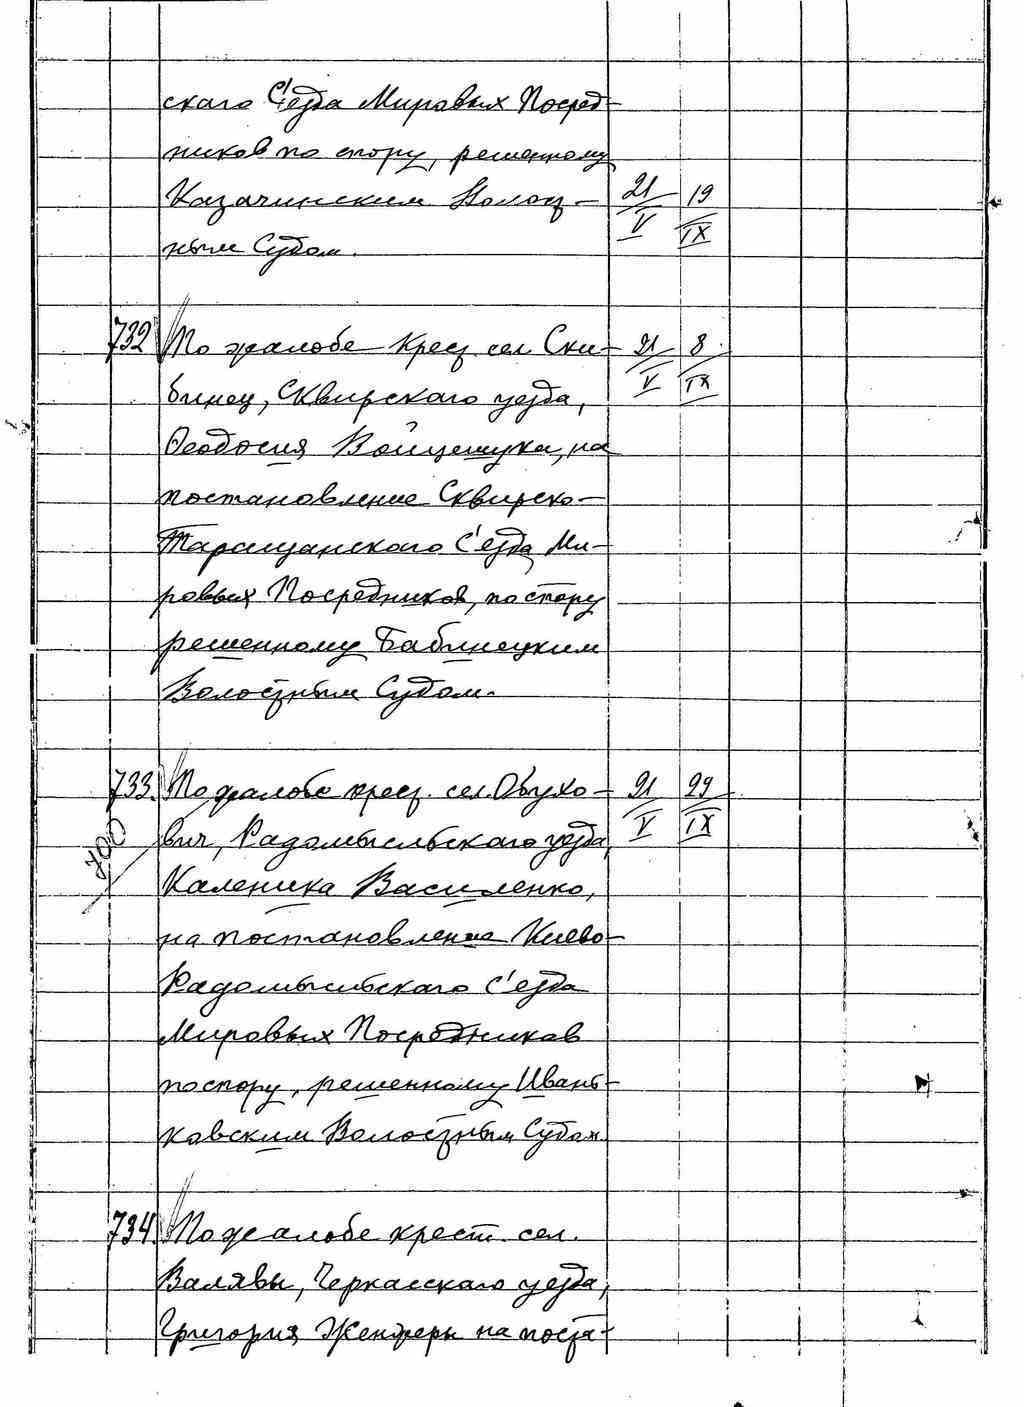 скаго С'езда Мировых Посред-
ников по спору, решенному
Казачинским Волост- 21/V 19/IX
ным Судом.
732 По жалобе крест. сел. Ски- 21/V 8/IX
бинец, Сквирскаго уезда,
Феодосия Войцешука, на
постановление Сквирско-
Таращанскаго С'езда Ми-
ровых Посредников, по спору
решенному Бабинецким
Волостным Судом.
733. По жалобе крест. сел. Обухо- 21/V 29/IX
700
вич, Радомысльскаго уезда,
Каленика Василенко,
на постановление Киево-
Радомысльскаго С'езда
Мировых Посредников
по спору, решенному Ивань-
ковским Волостным Судом.
734. По жалобе крест. сел.
Валявы, Черкасскаго уезда,
Григория на поста-